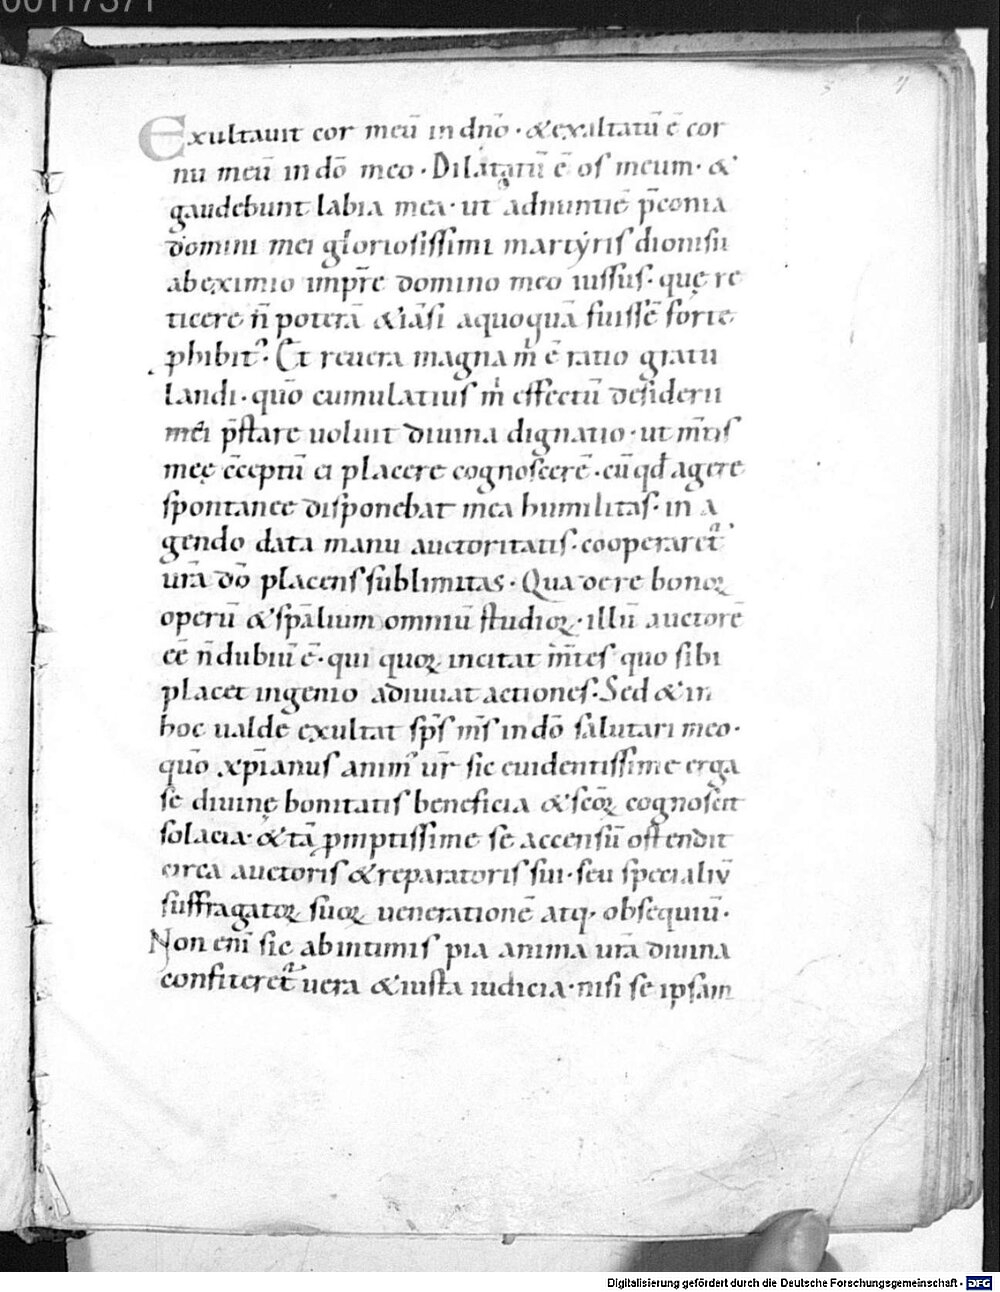 00117371
Exultauit cor meū in dn̄o · &exaltatū ē cor
nu meū in dō meo · Dilatatū ē os meum · &
gaudebunt labia mea · ut adnuntiē p̄conia
domini mei gloriosissimi martẏris dionisii
abeximio imp̄re domino meo iussus · quę re
ticere n̄ poterā &iāsi aquoquā fuissē forte
phibit᷒ · Et reuera magna m̍ ē ratio gratu
landi · quō cumulatius m̍ effectū desiderii
mei p̄stare uoluit diuina dignatio · ut m̄tis
meę c̄ceptū ei placere cognoscerē · cū qđ agere
spontanee disponebat mea humilitas · in a
gendo data manu auctoritatis · cooperaret᷒
ur̄a dō placens sublimitas · Qua de re bonoꝝ
operū &sp̄alium omniū studioꝝ · illū auctorē
eē n̄dubiū ē · qui quoꝝ incitat m̄tes quo sibi
placet ingenio adiuuat actiones · Sed &in
hoc ualde exultat sp̄s m̄s in dō salutari meo ·
quō xp̄ianus anim᷒ ur̄ sic euidentissime erga
se diuinę bonitatis beneficia &sc̄oꝝ cognoscit
solacia · &tā ꝓmptissime se accensū ostendit
circa auctoris &reparatoris sui · seu specialiū
suffragatoꝝ suoꝝ uenerationē atq; obsequiū ·
Non eni̅ sic abintimis pia anima ur̄a diuina
confiteret᷒ uera &iusta iudicia · nisi se ipsam
Digitalisierung gefördert durch die Deutsche Forschungsgemeinschaft - DFG